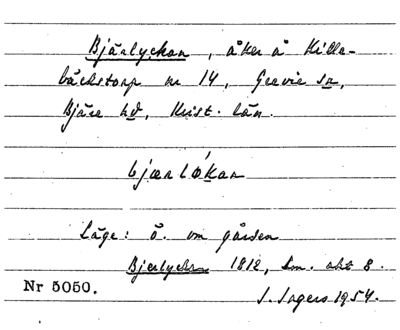 Bjärlyckan, åker å Kille-
bäckstorp nr 14, Grevie sn,
Bjäre hd, Krist. län.
bjærlǿkan
Läge: ö. om gården
Bjerlyckan 1812, Lm. akt 8.
Nr 5050.
I. Ingers 1954.